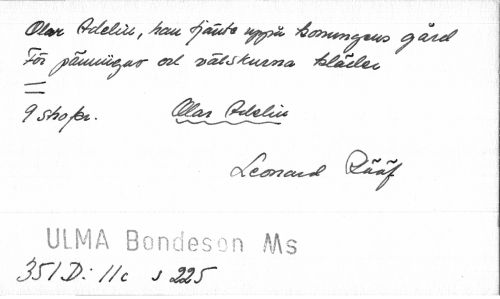 Olar Adelin, han tjänte uppå konungens gård
För pänningar och välskurna kläder
9 strofer. Olar Adelin
Leonard Rääf
ULMA Bondeson Ms
351 D: 11c s 225